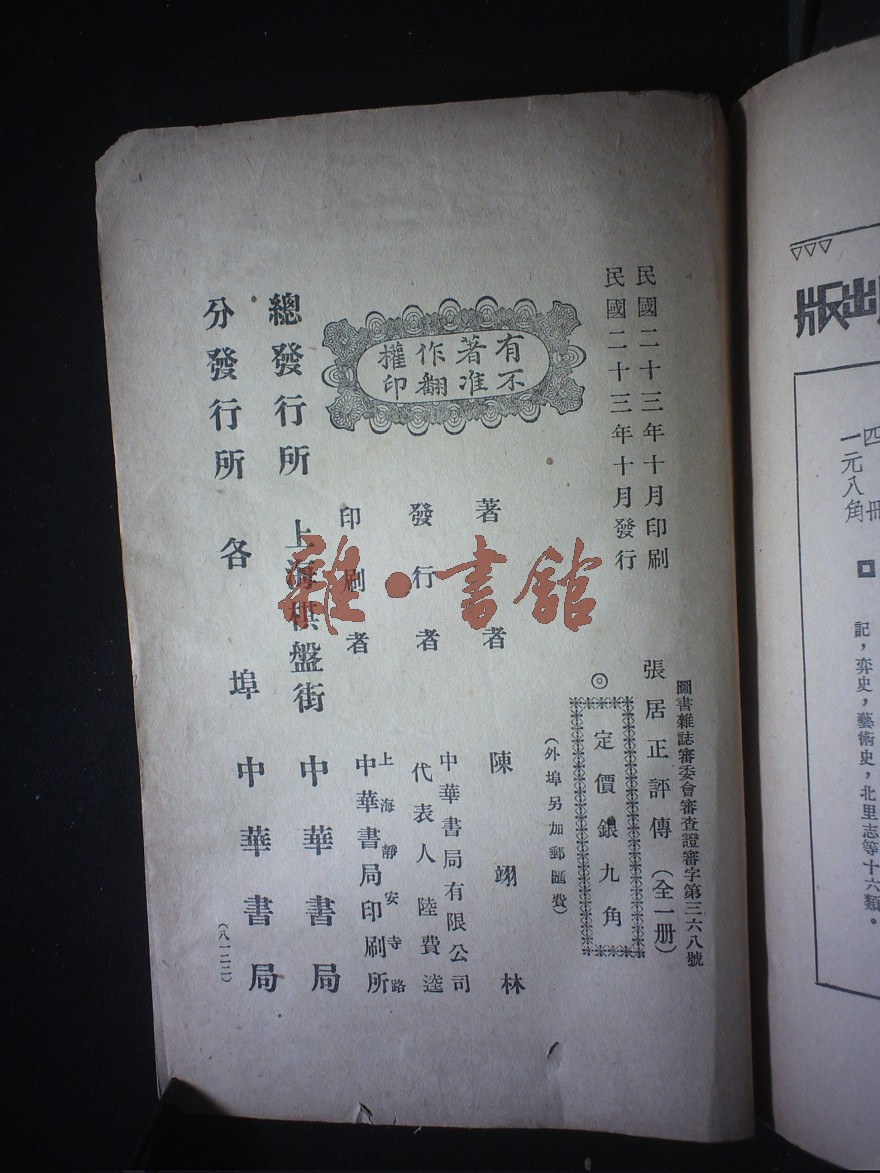 民國二十三年十月印刷
民國二十三年十月發行
圖書雜誌審委會審查證審字第三六八號
張居正評傳(全一册)
◎定價銀九角
(外埠另加郵匯費)
有著作權
不准翻印
著者 陳翊林
發行者 中華書局有限公司
代表人陸費逵
印刷者 上海靜安寺路
中華書局印刷所
總發行所 上海棋盤街 中華書局
分發行所 各埠 中華書局
(八一二二)
雜·書館
出版
四冊
一元八角
記,弈史,藝術史,北里志等十六類。